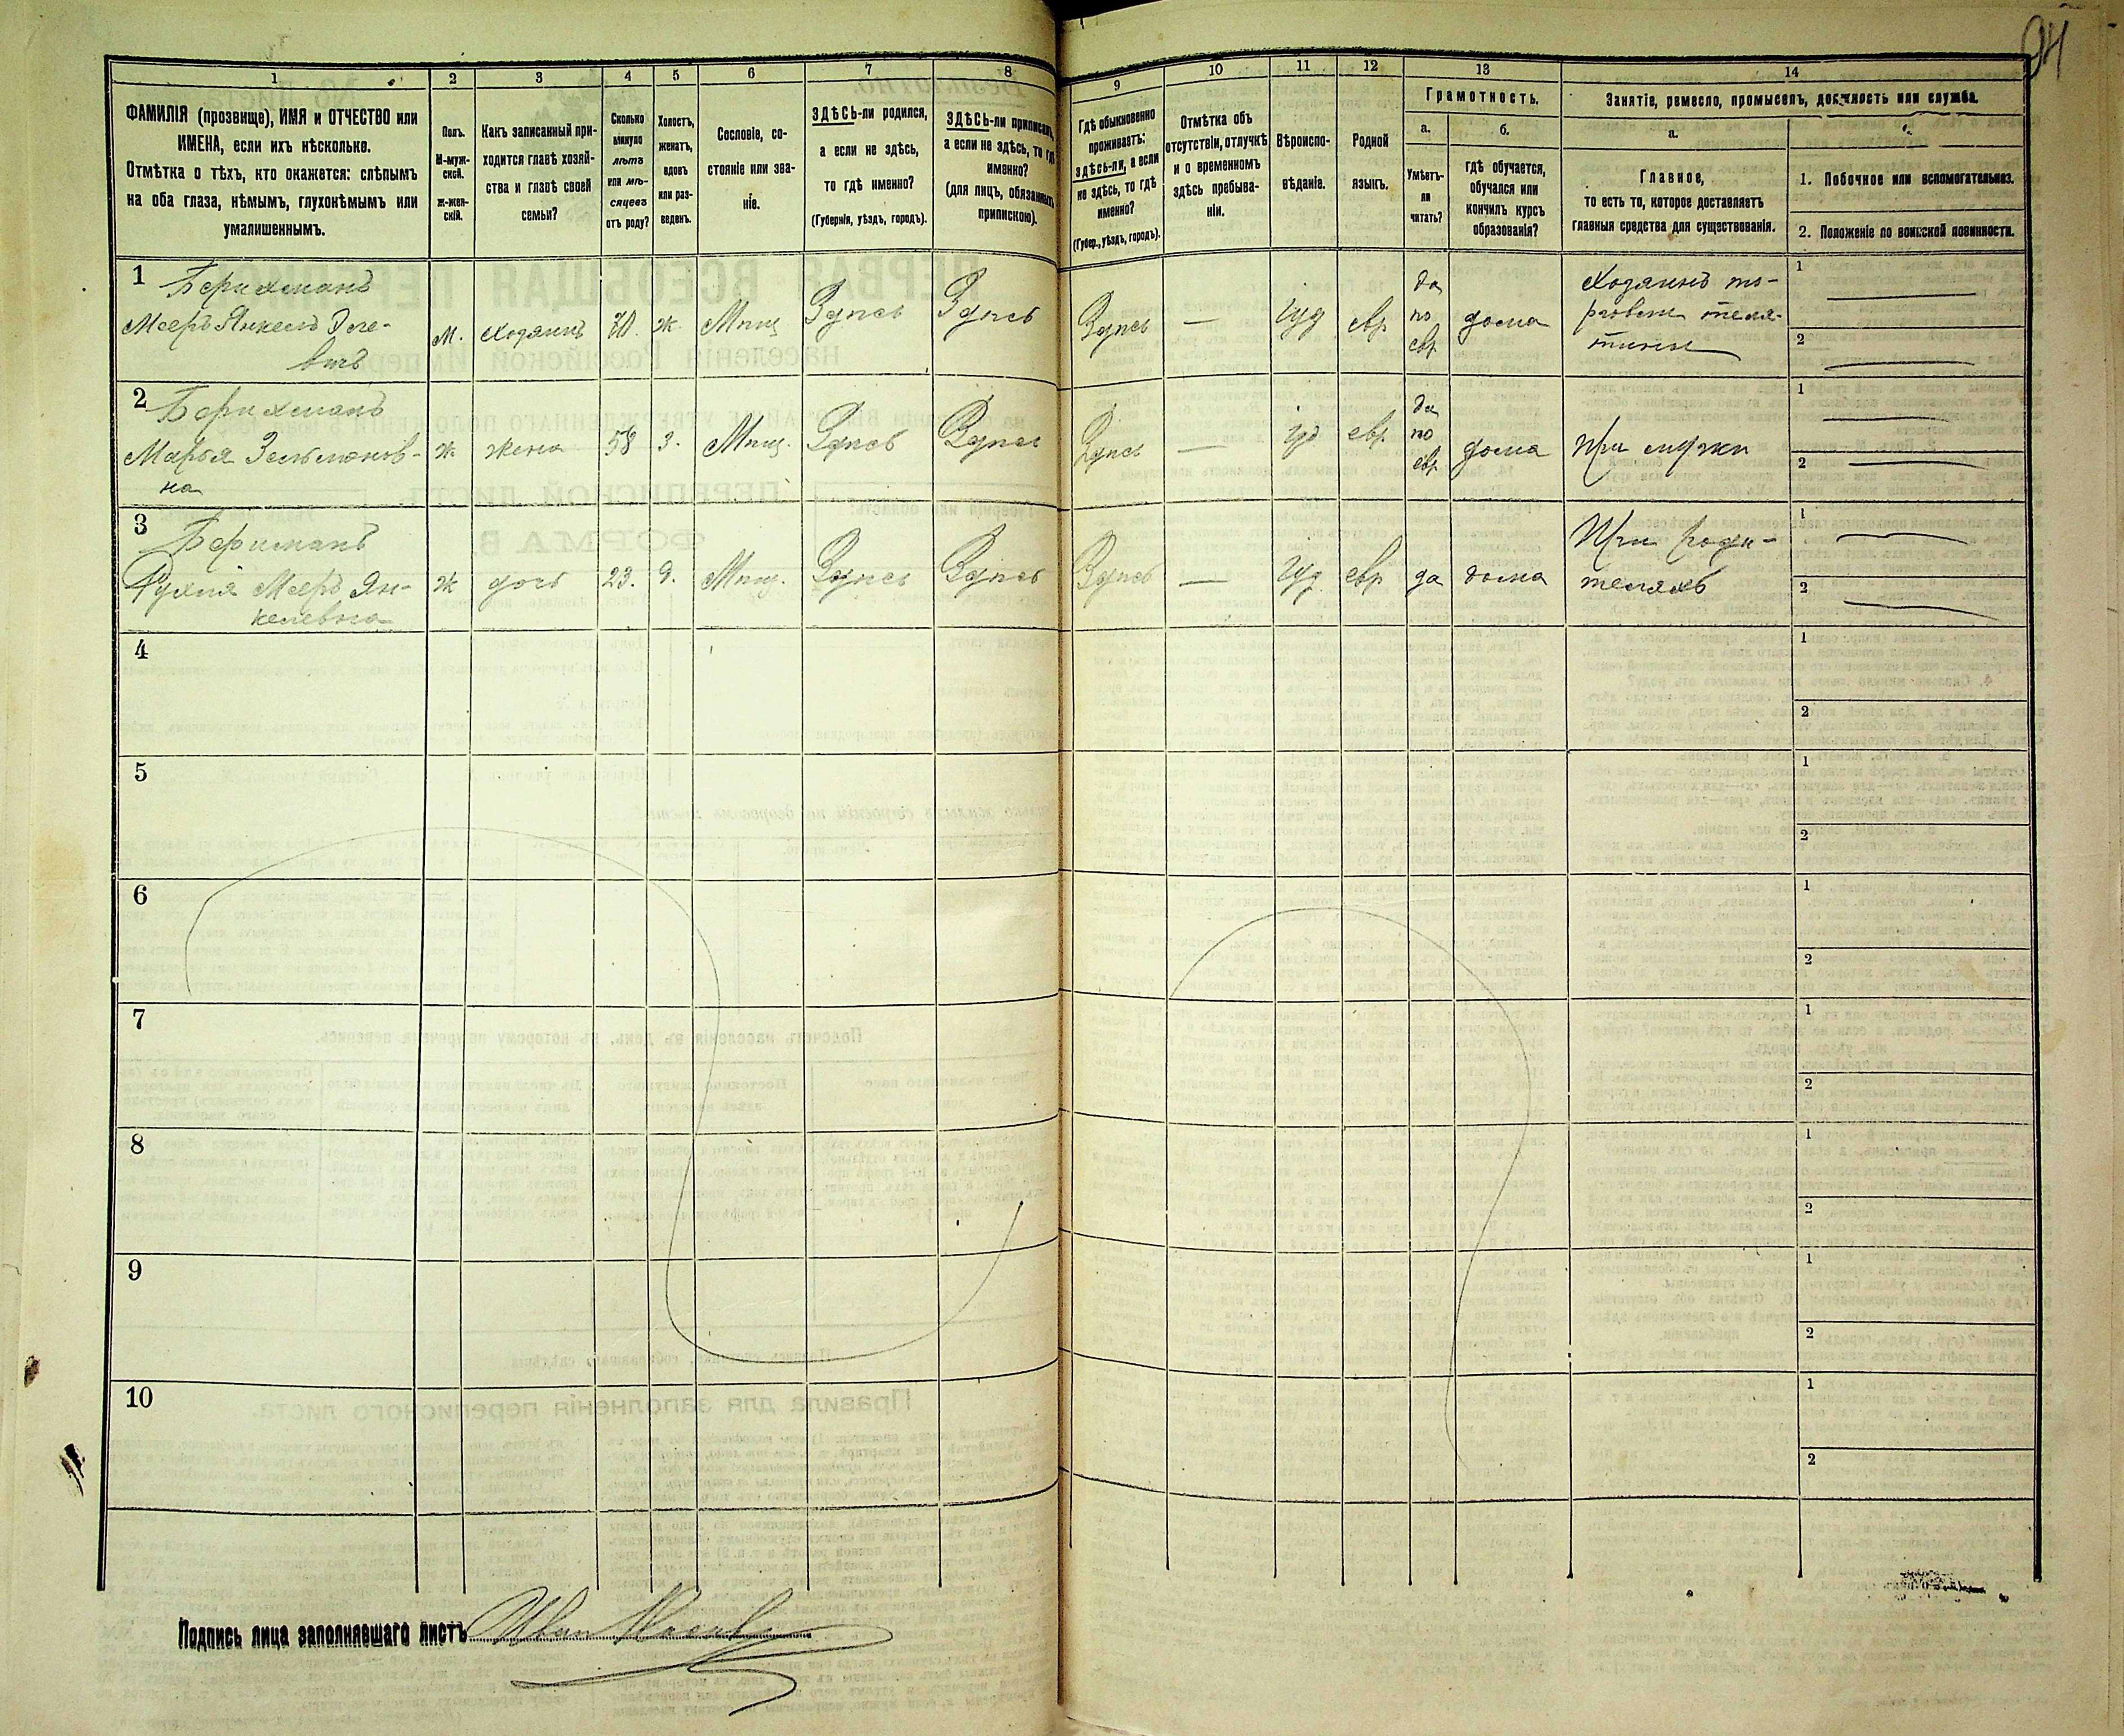 94
1 2 3 4 5 6 7 8 9 10 11 12 13 14
ФАМИЛІЯ (прозвище), ИМЯ и ОТЧЕСТВО или
ИМЕНА, если ихъ нѣсколько.
Отмѣтка о тѣхъ, кто окажется: слѣпымъ
на оба глаза, нѣмымъ, глухонѣмымъ или
умалишеннымъ.
Полъ.
М-муж-
ской.
Ж-жен-
скій.
Какъ записанный при-
ходится главѣ хозяй-
ства и главѣ своей
семьи?
Сколько
минуло
лѣтъ
или мѣ-
сяцевъ
отъ роду?
Холостъ,
женатъ,
вдовъ
или раз-
веденъ.
Сословіе, со-
стояніе или зва-
ніе.
ЗДѢСЬ-ли родился,
а если не здѣсь,
то гдѣ именно?
(Губернія, уѣздъ, городъ).
ЗДѢСЬ-ли приписанъ,
а если не здѣсь, то гдѣ
именно?
(для лицъ, обязанныхъ
припискою).
Гдѣ обыкновенно
проживаетъ:
здѣсь-ли, а если
не здѣсь, то гдѣ
именно?
(Губер., уѣздъ, городъ).
Отмѣтка объ
отсутствіи, отлучкѣ
и о временномъ
здѣсь пребыва-
ніи.
Вѣроиспо-
вѣданіе.
Родной
языкъ.
Грамотность.
а.
Умѣетъ-
ли
читать?
б.
гдѣ обучается,
обучался или
кончилъ курсъ
образованія?
Занятіе, ремесло, промыселъ, должность или служба.
а.
Главное,
то есть то, которое доставляетъ
главныя средства для существованія.
1. Побочное или вспомогательное.
2. Положеніе по воинской повинности.
1
Мееръ Янкель
м. Хозяинъ 70. ж. Мѣщ Здѣсь Здѣсь Здѣсь — Іуд евр да по евр дома
Хозяинъ то-
рговли теля-
тины
1
2
2
Марья Зельманов-
на
ж жена 58 з. Мѣщ. Здѣсь Здѣсь Здѣсь — іуд евр. да по евр. дома При мужѣ
1
2
3
Мееръ Ян-
келевна
ж дочь 23. д. Мѣщ. Здѣсь Здѣсь Здѣсь — Іуд. евр да дома
При роди-
теляхъ
1
2
4
1
2
5
1
2
6
1
2
7
1
2
8
1
2
9
1
2
10
1
2
Подпись лица заполнявшаго листъ Иван